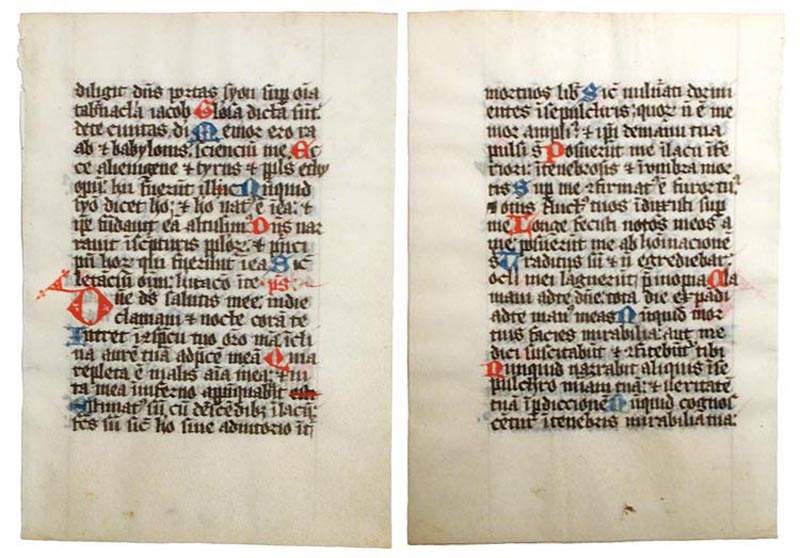 diligit dñs portas syon sup oīa
tabñacla iacob Glosa dictā sūt
de te civitas di Memor ero ra
ab & babylonis scienciū me Ec
ce alienigene & tyrus & ppls ethy
opū hii fuerūt illic Nūquid
syō dicet hō & hō nat ē i ea &
ipe fūdavit eā altissim Dñs nar
ravit i scpturis pplor & pnci
pū hor qui fuerūt i ea Sic
letanciū oim hitaco i te ps
Dne ds salutis mee in die
clamavi & nocte corā te
Intret i cspcū tuo oro mā icli
na aurē tuā ad pcē meā Quia
repleta ē malis aīa mea & vi
ta mea inferno appiquabit
Estimat sū cū descēdētib i lacū
tes sū sic hō sine adiutorio īt
mortuos lib Sic vulnati dormi
entes i sepulchris quor nō ē me
mor ampli & ipi de manu tua
pulsi s Posuerūt me i lacu īfe
riori i tenebrosis & i ūmbra mor
tis Sup me cfirmat ē furor tu
& oms fluct tuos iduxisti sup
me Longe fecisti notos meos a
me posuerūt me abhoinacionē
s Traditus sū & nō egrediebar
oculi mei languerūt p inopia Cla
mavi ad te dne tota die expādi
ad te man meas Nūquid mor
tuis facies mirabilia aut me
dici suscitabūt & cfitebūt tibi
Nunquid narrabit aliquis i se
pulchro miam tuā & veritatē
tuā i pdiccione Nūquid cognos
cētur i tenebris mirabilia tua